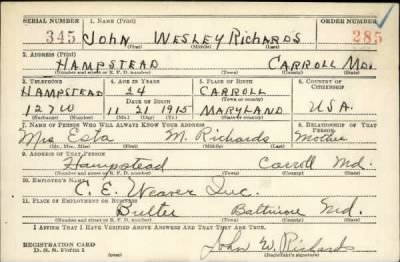 SERIAL NUMBER 1. NAME (Print) ORDER NUMBER
345 JOHN WESLEY RICHARDS 285
(First) (Middle) (Last)
2. ADDRESS (Print)
HAMPSTEAD CARROLL MD.
(Number and street or R. F. D. number) (Town) (County) (State)
3. TELEPHONE 4. AGE IN YEARS 5. PLACE OF BIRTH 6. COUNTRY OF CITIZENSHIP
HAMPSTEAD 24 CARROLL
DATE OF BIRTH (Town or county)
127W 11 21 1915 MARYLAND U.S.A.
(Exchange) (Number) (Mo.) (Day) (Yr.) (State or country)
7. NAME OF PERSON WHO WILL ALWAYS KNOW YOUR ADDRESS 8. RELATIONSHIP OF THAT PERSON
Mrs M. Richards Mother
(Mr., Mrs., Miss) (First) (Middle) (Last)
9. ADDRESS OF THAT PERSON
Hampstead Carroll Md.
(Number and street or R. F. D. number) (Town) (County) (State)
10. EMPLOYER'S NAME
C. E. Weaver Inc.
11. PLACE OF EMPLOYMENT OR BUSINESS
Baltimore Md.
(Number and street or R. F. D. number) (Town) (County) (State)
I AFFIRM THAT I HAVE VERIFIED ABOVE ANSWERS AND THAT THEY ARE TRUE.
REGISTRATION CARD John W. Richards
D. S. S. Form 1 (Registrant's signature)